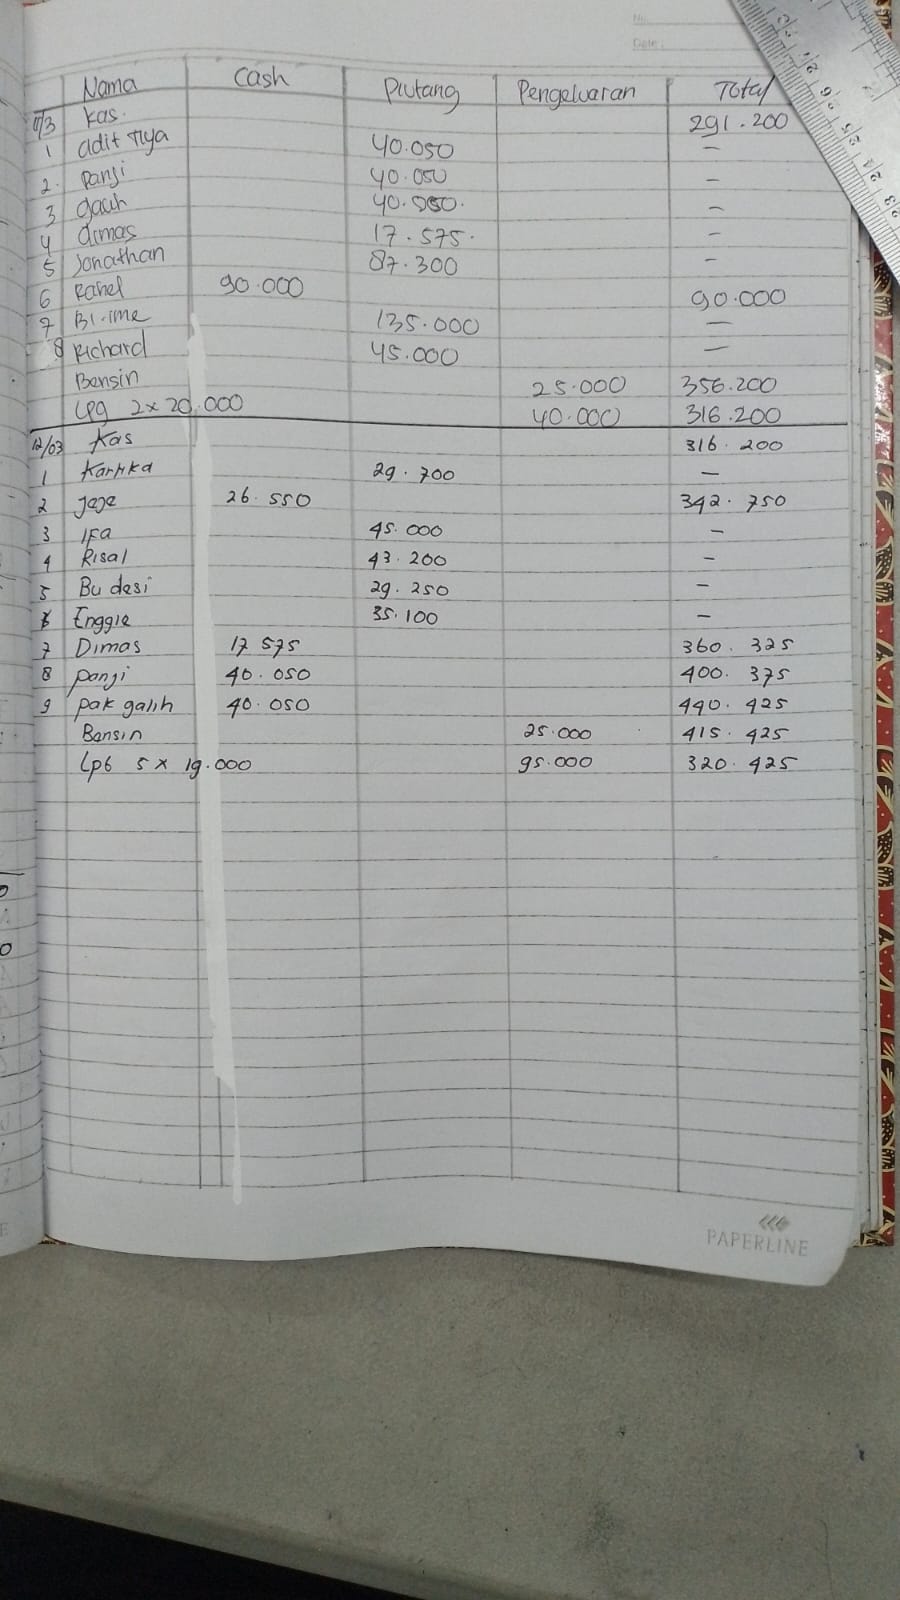 No.
Date:
Nama Cash Piutang Pengeluaran Total
11/3 Kas. 291.200
1 aditTiya 40.050 -
2. Panji 40.050 -
3 galih 40.050. -
4 dimas 17.575. -
5 Jonathan 87.300 -
6 Rahel 90.000 90.000
7 Bi-ime 135.000 -
8 Richard 45.000 -
Bensin 25.000 356.200
Lpg 2x20.000 40.000 316.200
12/03 Kas 316.200
1 Kartika 29.700 -
2 Jeje 26.550 342.750
3 Ifa 45.000 -
4 Risal 43.200 -
5 Bu desi 29.250 -
6 Enggie 35.100 -
7 Dimas 17.575 360.325
8 panji 40.050 400.375
9 pak galih 40.050 440.425
Bensin 25.000 415.425
Lpg 5 x 19.000 95.000 320.425
PAPERLINE